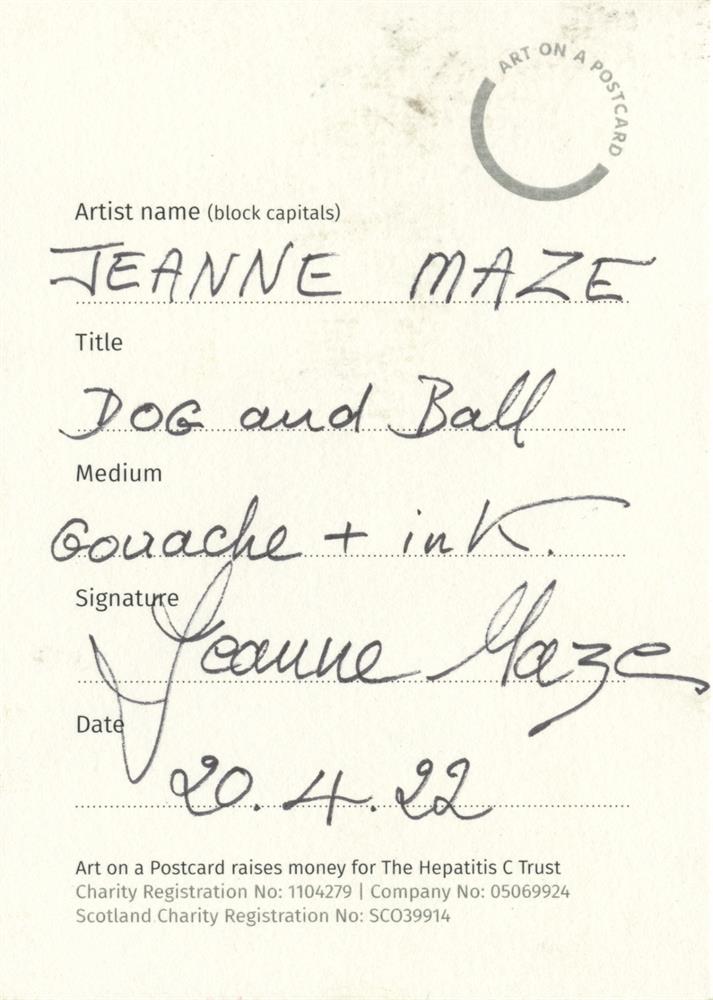 ART ON A POSTCARD
Artist name (block capitals)
JEANNE MAZE
Title
DOG and Ball
Medium
Gouache + ink.
Signature
Jeanne Maze
Date
20.4.22
Art on a Postcard raises money for The Hepatitis C Trust
Charity Registration No: 1104279 | Company No: 05069924
Scotland Charity Registration No: SCO39914